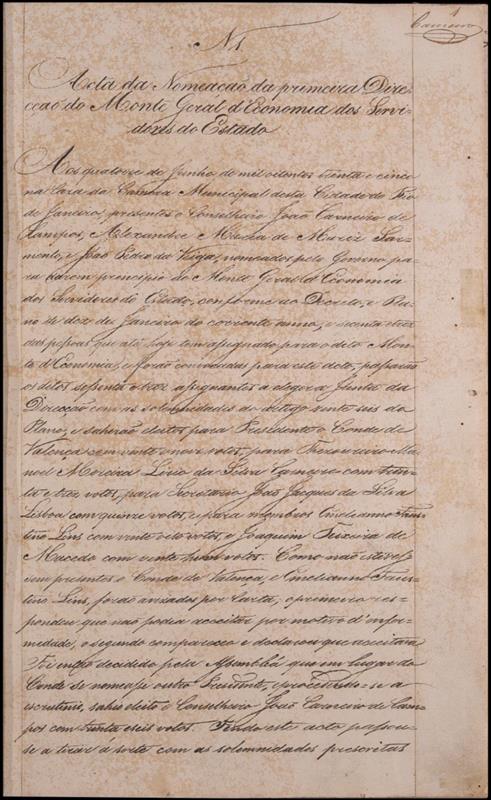 N 1
1
Carneiro
Acta da Nomeacaõ da primeira Direc-
caõ do Monte Geral d'Economia dos Servi-
dores do Estado
Aos quatorze de Junho de mil oitocentos trinta e cinco
na Caza da Camara Municipal desta Cidade do Rio
de Janeiro, presentes o Conselheiro João Carneiro de
Campos, Alexandre Maria de Mariz Sar-
mento, e João Pedro da Veiga, nomeados pelo Governo pa-
ra darem principio ao Monte Geral d'Economia
dos Servidores do Estado, conforme ao Decreto, e Pla-
no de dez de Janeiro do corrente anno, e secenta e tres
das pessoas que até hoje tem assignado para o dito Mon-
te d'Economia, e forão convocadas para este acto, passarão
os ditos sessenta e tres assignantes a eleger a Junta da
Direcção com as solemnidades do artigo vinte seis do
Plano, e sahirão eleitos para Presidente o Conde de
Valença com vinte e nove votos, para Thezoureiro Ma-
noel Moreira Lirio da Silva Carneiro com trin-
ta e tres votos, para Secretario João Jacques da Silva
Lisboa com quinze votos, e para membros Emilianno Faus-
tino Lins com vinte oito votos, e Joaquim Teixeira de
Macedo com vinte hum votos. Como não estives-
sem presentes o Conde de Valença, e Emilianno Faus-
tino Lins, forão avizados por Carta, o primeiro res-
pondeu que não podia acceitar por motivo d'infor-
midade, o segundo compareceo e declarou que acceitava
Foi então decidido pela Assembléa que em lugar do
Conde se nomeasse outro Presidente, e procedendo-se a
escrutinio, sahio eleito o Conselheiro João Carneiro de Cam-
pos com trinta e seis votos. Findo este acto passou-
se a tirar á sorte com as solemnidades prescritas